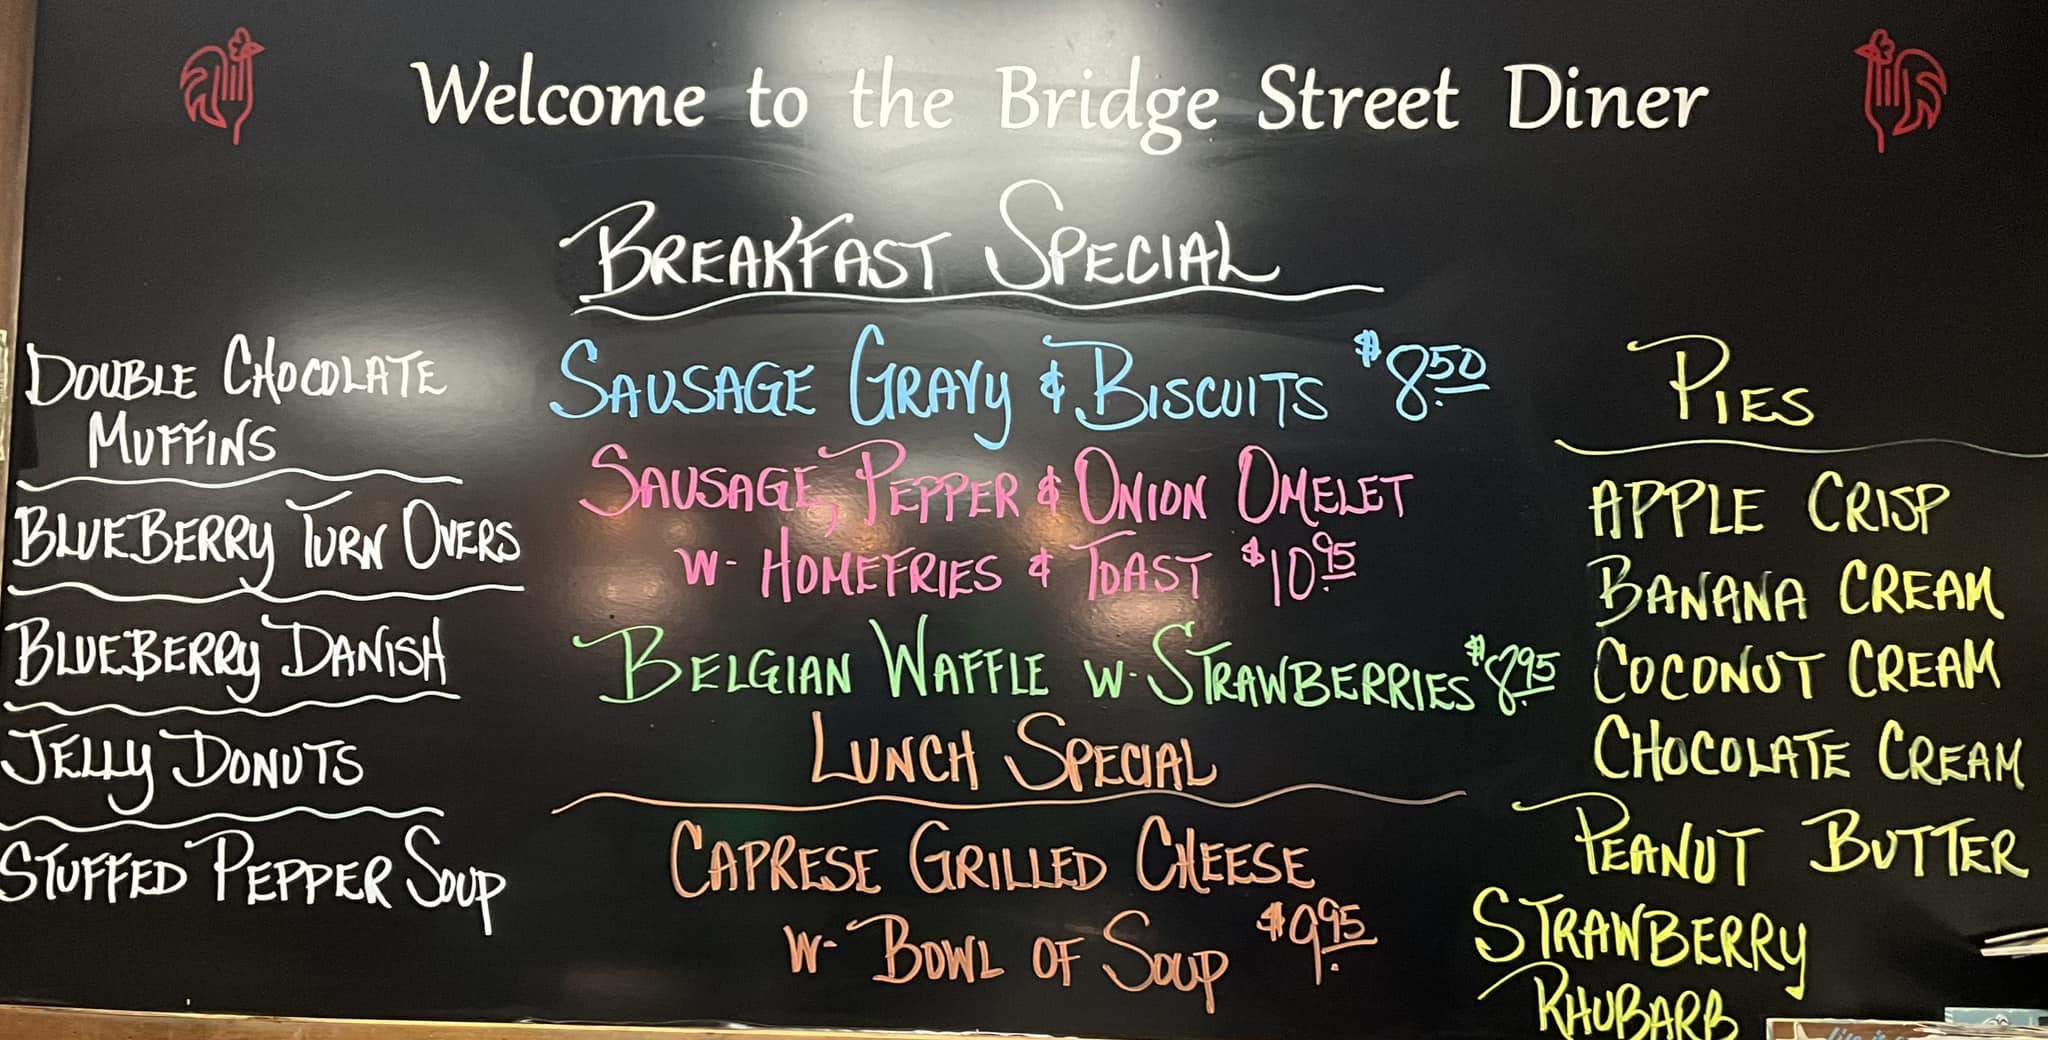 Welcome to the Bridge Street Diner
BREAKFAST SPECIAL
DOUBLE CHOCOLATE
MUFFINS
BLUEBERRY TURN OVERS
BLUEBERRY DANISH
JELLY DONUTS
STUFFED PEPPER SOUP
SAUSAGE GRAVY & BISCUITS $8.50
SAUSAGE, PEPPER & ONION OMELET
W- HOMEFRIES & TOAST $10.95
BELGIAN WAFFLE W- STRAWBERRIES $8.95
LUNCH SPECIAL
CAPRESE GRILLED CHEESE
W- BOWL OF SOUP $9.95
PIES
APPLE CRISP
BANANA CREAM
COCONUT CREAM
CHOCOLATE CREAM
PEANUT BUTTER
STRAWBERRY
RHUBARB